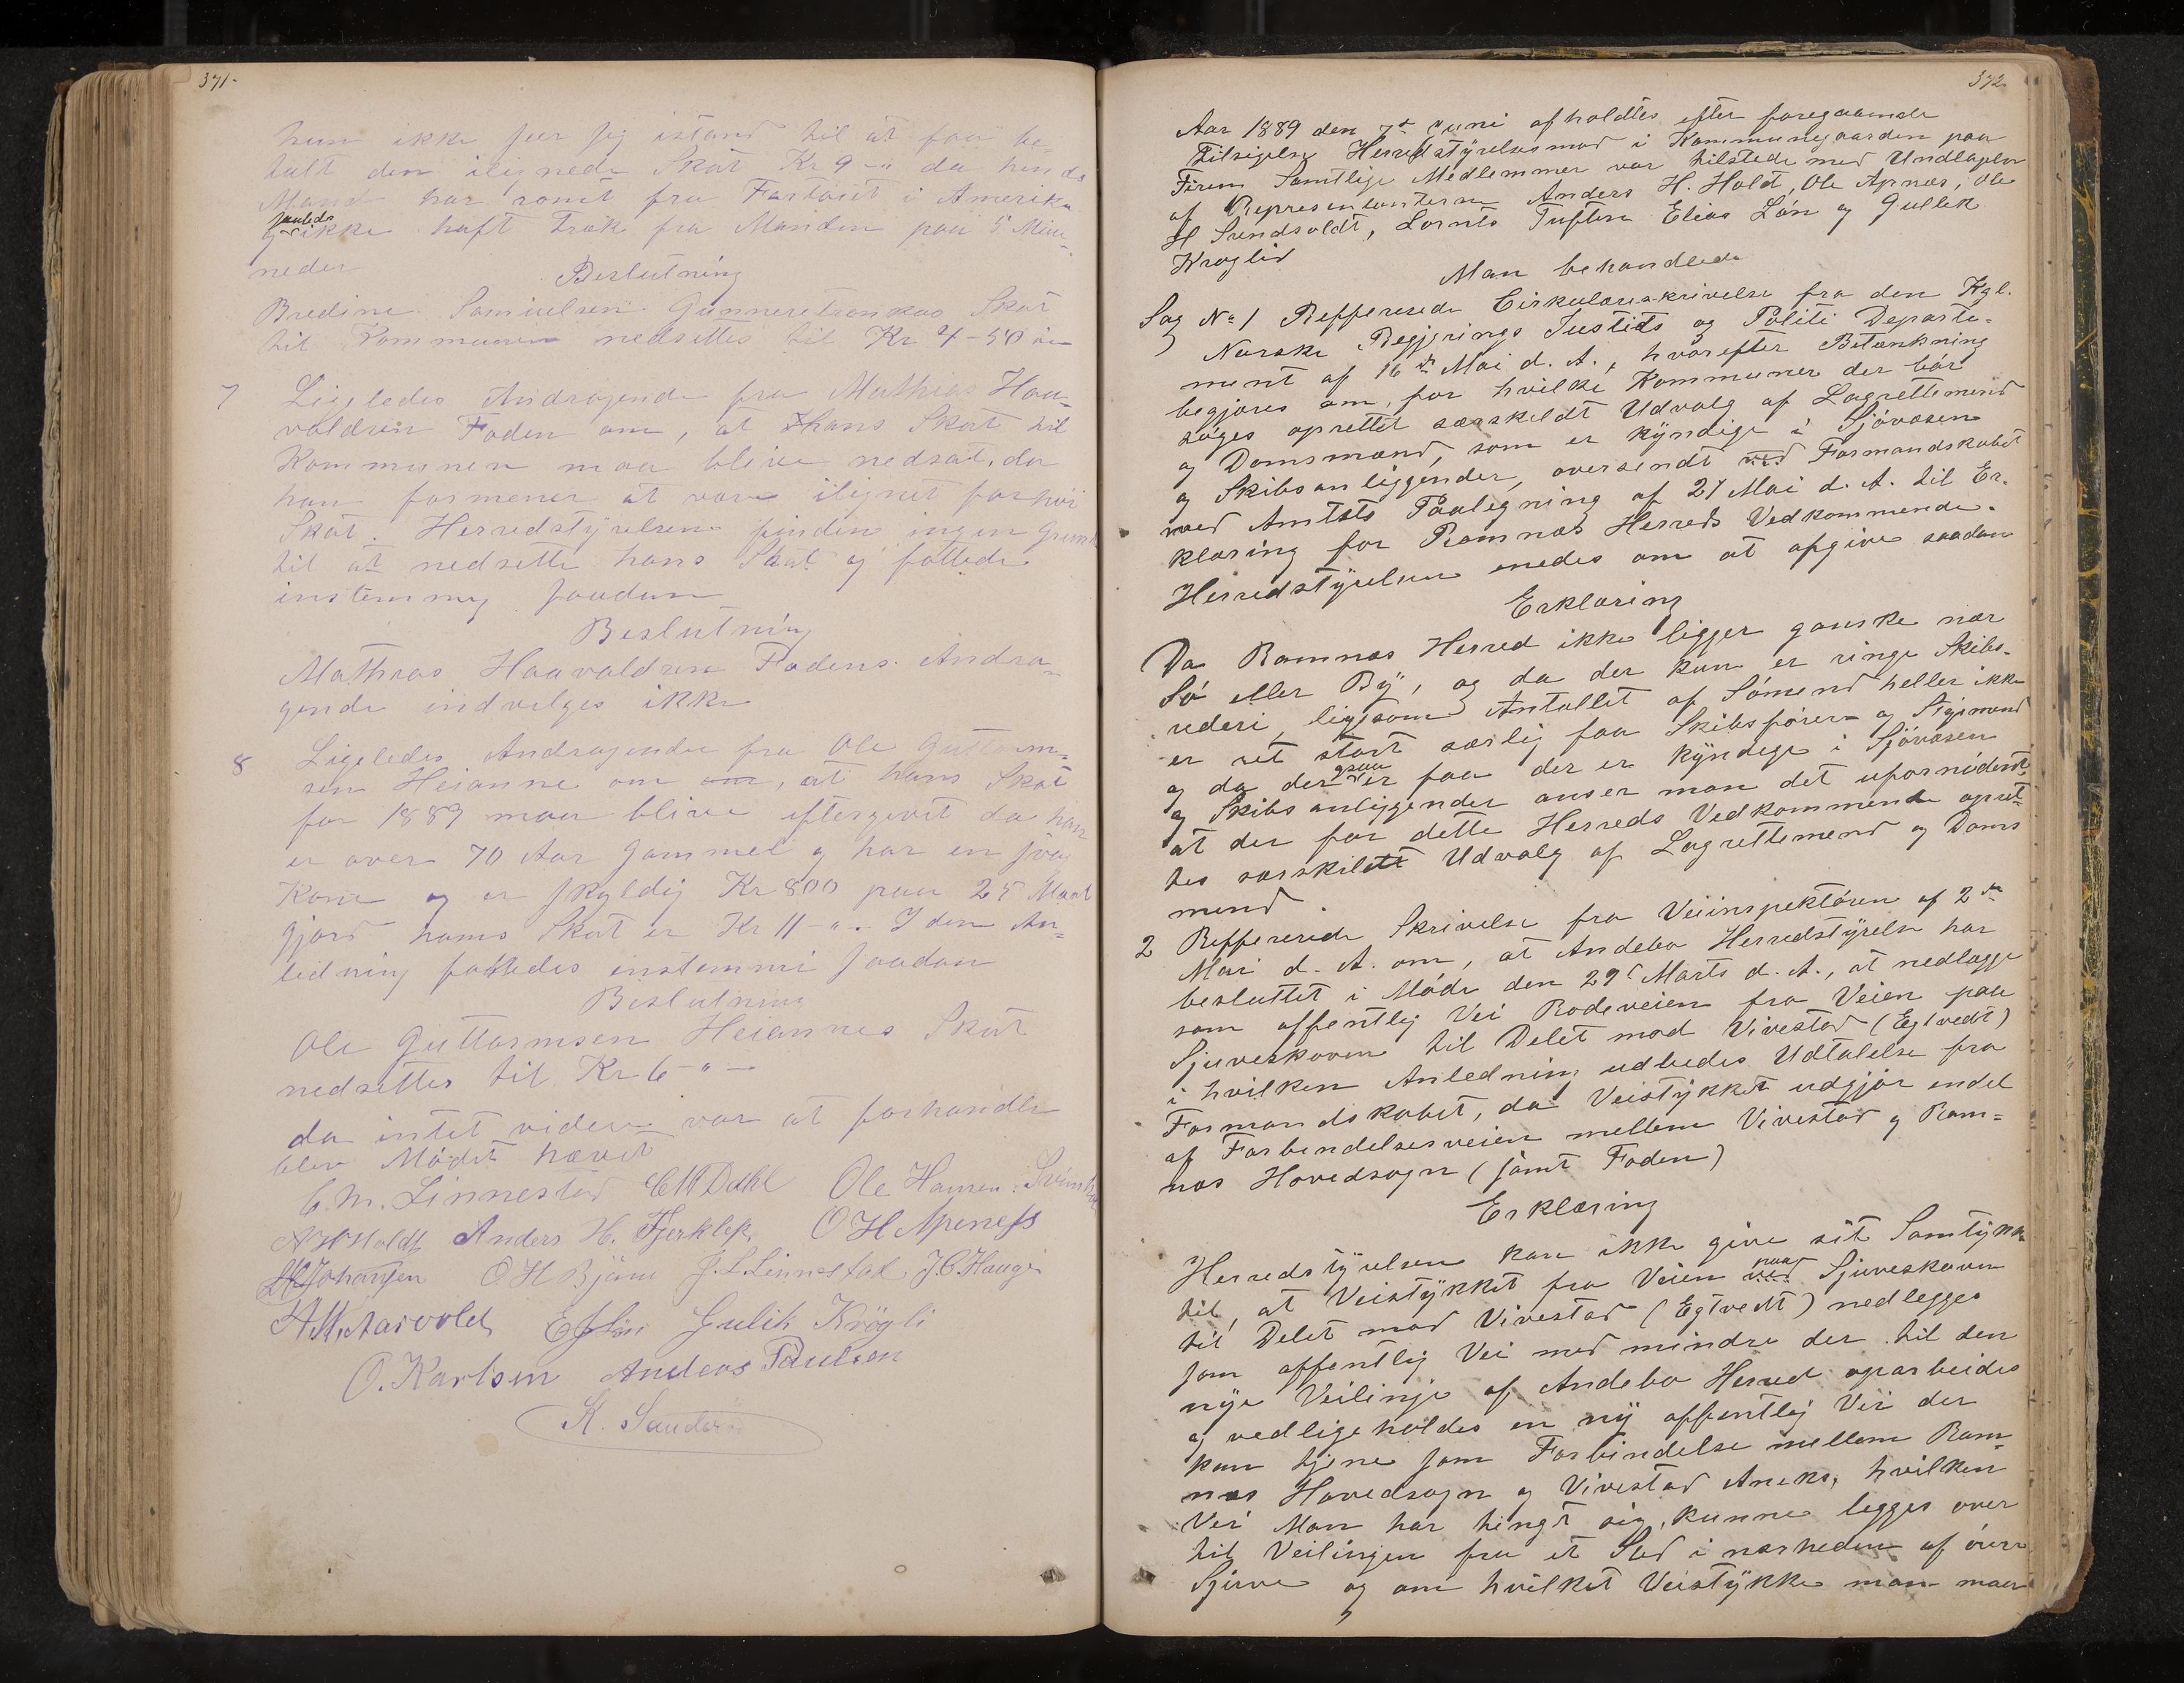 371.
hun ikke seer sig istand til at faa be-
talt den ilignede Skat Kr 9-" da hendes
Mand har rømt fra Fartøiet i Amerika
saaledes
og ikke haft Træk fra Manden paa 5 Maa-
neder
Beslutning
Bredine Samuelsen Gunnerstrønkas Skat
til Kommunen nedsettes til Kr 4-50 øre
7 Ligeledes Andragende fra Mathias Haa-
valdsen Foden om, at hans Skat til
Kommunen maa blive nedsat, da
han formener at være ilignet for høi
Skat. Herredstyrelsen finder ingen Grund
til at nedsette hans Skat og fattede
instemmig saadan
Beslutning
Mathias Haavaldsen Fodens Andra-
gende indvilges ikke
8 Ligeledes Andragende fra Ole Guttorm-
sen Heianne om om, at hans Skat
for 1889 maa blive eftergivet da han
er over 70 Aar gammel og har en svag
Kone og er skyldig Kr 800 paa 25 Maal
Gjord hans Skat er Kr 11-". I den An-
ledning fattedes instemmi saadan
Beslutning
Ole Guttormsen Heiannes Skat
nedsettes til Kr 6-"-
da intet videre var at forhandle
blev Mødet hævet
C. M. Linnestad CMDahl Ole Hansen Svinsho
AHHoldt Anders H. Fjerklep. OHApeness
Johansen OHBjåmi J.L.Linnestad J.C.Hauge
AMAasvold Gulik Krøgli
O. Karlsen Anders Paulsen
K. Sanders
372.
Aar 1889 den 7de Juni afholdtes efter foregaaende
Tilsigelse Herredstyrelsesmød i Kommunegaarden paa
Firen Samtlige Medlemmer var tilstede med Undtagelse
af Representanterne Anders H. Holdt, Ole Apnæs, Ole
H Svendsvoldt, Lornts Tuften Elias Løn og Gullek
Krøglid
Man behandlede
Sag No 1 Reffererede Cirkulæreskrivelse fra den Kgl.
Norske Regjerings Justits og Politi Departe-
ment af 16de Mai d. A., hvorefter Betænkning
begjæres om, for hvilke Kommuner der bør
søges oprettet særskildt Udvalg af Lagrettemend
og Domsmænd, som er kyndige i Sjøvæsen
og Skibsanliggender, oversendt ved Formandskabet
med Amtets Paategning af 21 Mai d. A. til Er-
klæring for Ramnæs Herreds Vedkommende.
Herredstyrelsen enedes om at afgive saadan
Erklæring
Da Ramnæs Herred ikke ligger ganske nær
Sø eller By, og da der kun er ringe Skibs-
rederi, ligesom Antallet af Sømend heller ikke
er ret stort særlig faa Skibsførere og Stýrmend
og da der er faa der er kyndige i Sjøvæsen
og Skibsanliggender anser man det ufornødent,
at der for dette Herreds Vedkommende opret-
tes særskildt Udvalg af Lagrettemend og Doms
mend.
2 Reffererede Skrivelse fra Veiinspektøren af 2de
Mai d. A. om, at Andebo Herredstyrelse har
besluttet i Møde den 29de Marts d. A., at nedlægge
som offentlig Vei Rodeveien fra Veien paa
Sjueskoven til Delet mod Vivestad (Egtvedt)
i hvilken Anledning udbedes Udtalelse fra
Formandskabet, da Veistykket udgjør endel
af Forbindelsesveien mellem Vivestad og Ram=
næs Hovedsogn (samt Foden)
Erklæring
Herredstyrelsen kan ikke give sit Samtykke
til, at Veistykket fra Veien paa Sjueskoven
til Delet mod Vivestad (Egtvedt) nedlegges
som offentlig Vei med mindre der til den
nye Veilinje af Andebo Herred oparbeides
og vedligeholdes en ny offentlig Vei der
kan tjene som Forbindelse mellem Ram-
næs Hovedsogn og Vivestad Aneks, hvilken
Vei Man har tengt sig, kunne legges over
til Veilingen fra et Sted i nærheden af øvre
Sjue og om hvilket Veistykke man maa